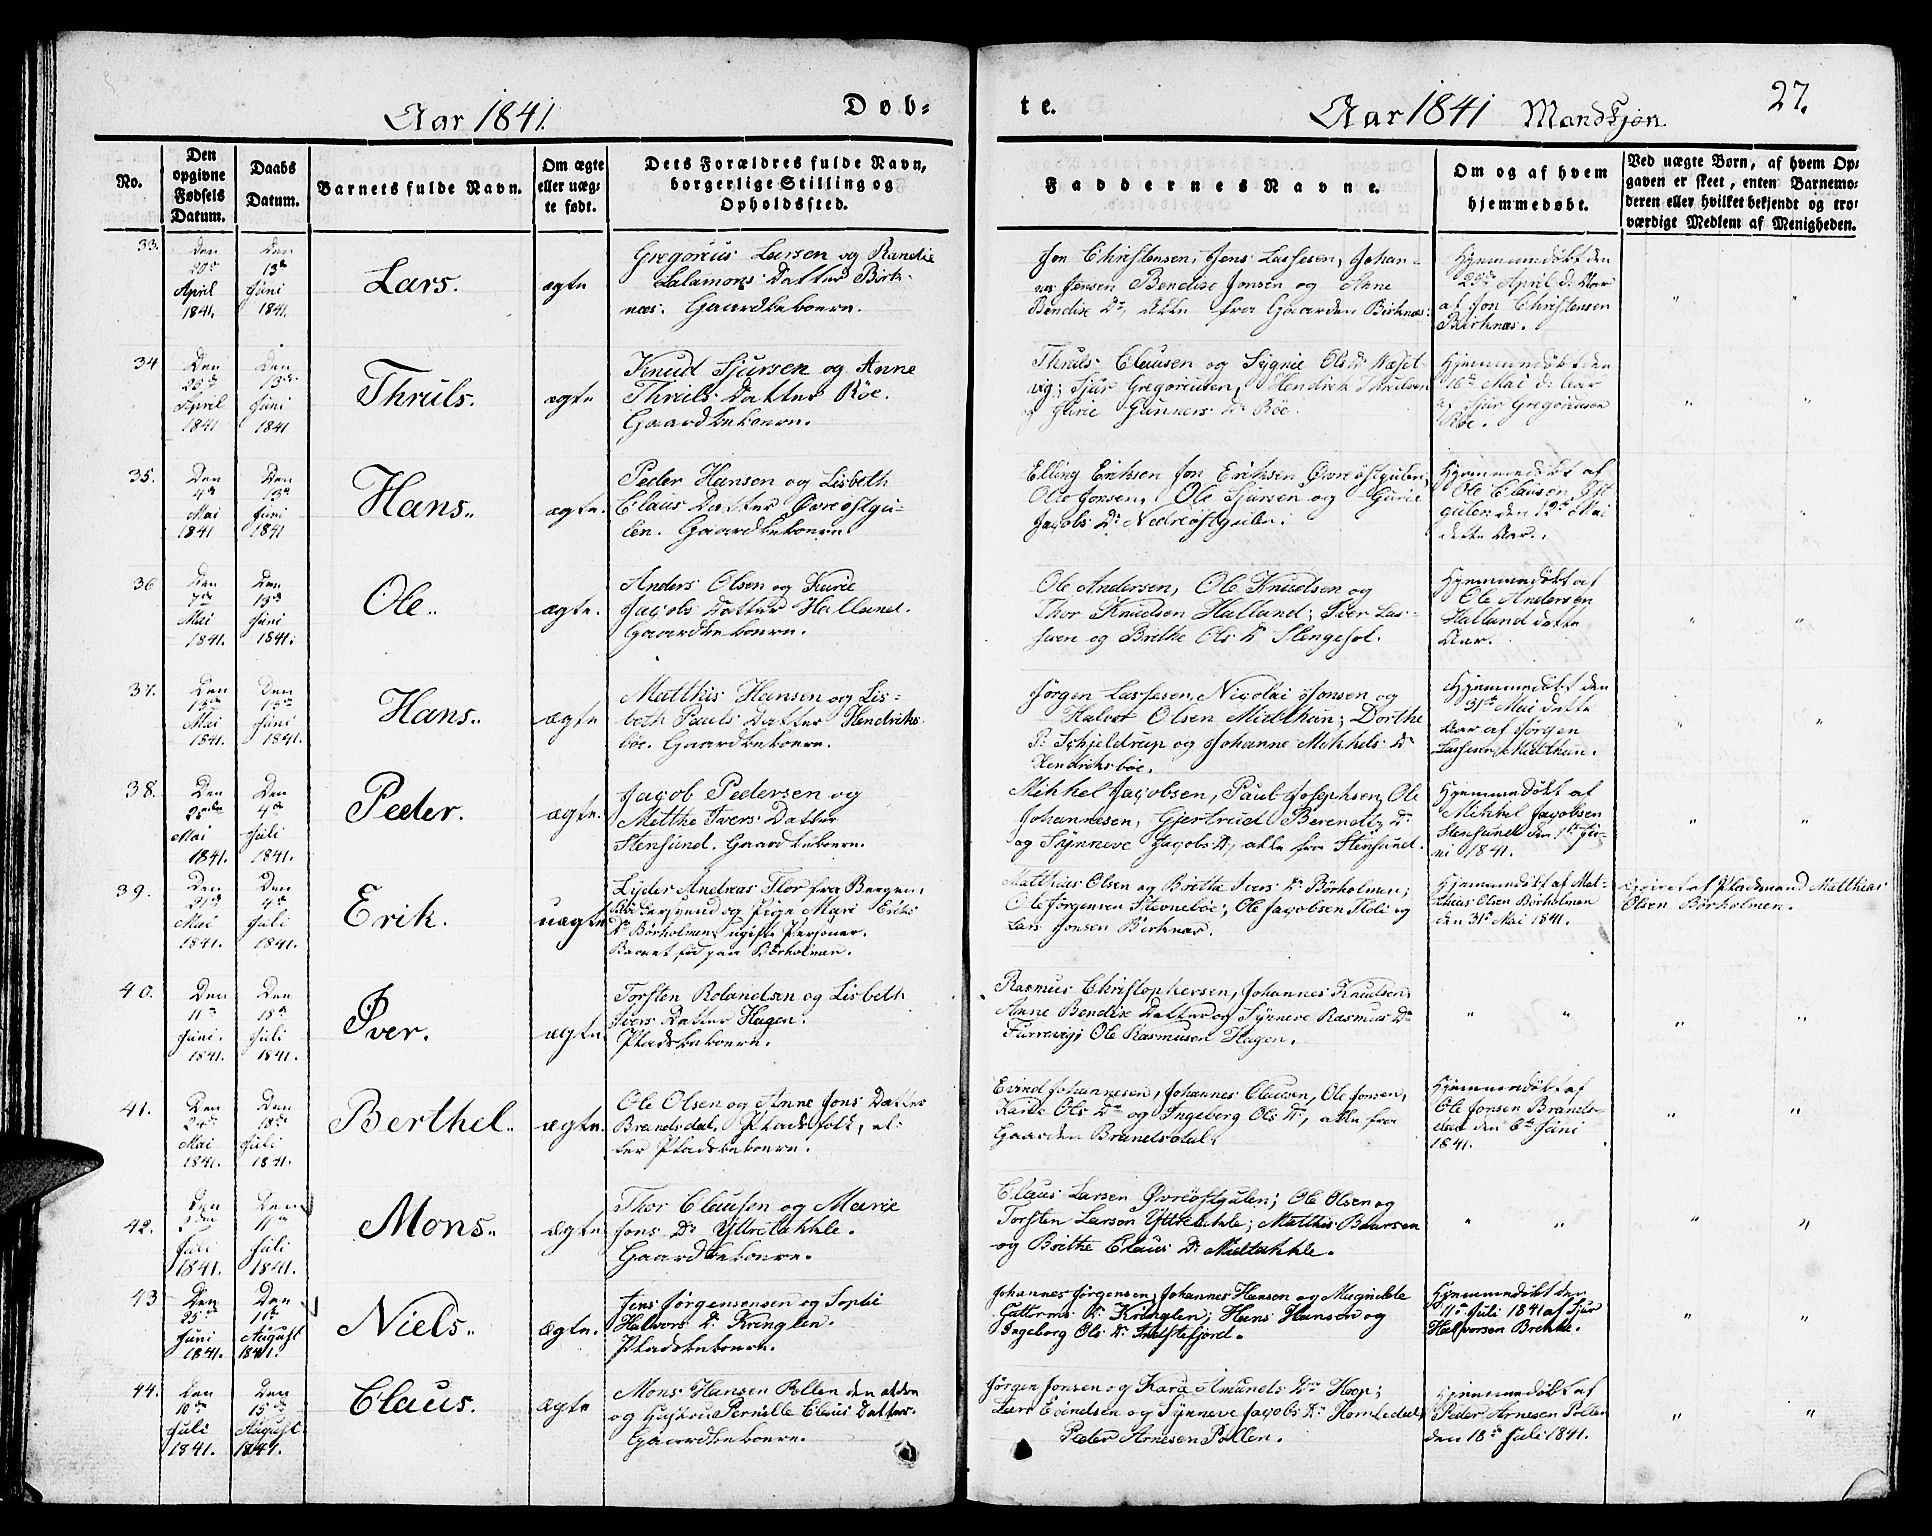 Aar 1841. Døb=
No.
Den opgivne Fødsels Datum.
Daabs Datum.
Barnets fulde Navn.
Om ægte eller uæg- te født.
Dets Forældres fulde Navn, borgerlige Stilling og Opholdssted.
te. Aar 1841 Mandkjøn 27.
Faddernes Navne.
Om og af hvem hjemmedøbt.
Ved uægte Børn, af hvem Op- gaven er skeet, enten Barnemo- deren eller hvilket bekjendt og tro- værdigt Medlem af Menigheden.
33.
Den
April
1841.
Den
13de
Juni
1841.
Lars.
ægte
Gregorius Larsen og Randie
Salamons Datter Birk-
næs. Gaardbeboere.
Jon Christensen, Jens Lassesen, Johan-
nes Jensen Bendix Jonsen og Anne
Bendix Dr, alle fra Gaarden Birknæs.
Hjemmedøbt den
April d: Aar
af Jon Christensen
Birknæs.
34
Den
25de
April
1841
Den
13de
Juni
1841
Thruls.
ægte
Knud Sjursen og Anne
Thruls Datter Röe.
Gaardbeboere.
Thruls Clausen og Sygnie Ols Dr
vig; Sjur Gregoriusen, Hendrik Thrulsen
og Gurie Gunners Dr Röe.
Hjemmedøbt den
16de Mai d: Aar
af Sjur Gregoriusen
Röe.
35.
Den
4de
Mai
1841
Den
13de
Juni
1841
Hans.
ægte.
Peder Hansen og Lisbeth
Claus Datter Øvreöstgu-
len. Gaardbeboere.
Elling Eriksen Jon Eriksen Øvreöstgulen,
Ole Jonsen, Ole Sjursen og Gurie
Jacobs Dr Nedreöstgulen.
Hjemmedøbt af
Ole Clausen Øst
gulen den 12te Mai
dette Aar.
36
Den
7de
Mai
1841.
Den
13de
Juni
1841.
Ole.
ægte.
Anders Olsen og Kurie
Jacobs Datter Halland.
Gaardbeboere.
Ole Andersen, Ole Knudsen og
Thor Knudsen Halland; Iver Las-
sesen og Brithe Ols Dr Slengesol.
Hjemmedøbt af
Ole Andersen
Halland dette
Aar.
37.
Den
13de
Mai
1841.
Den
13de
Juni
1841.
Hans.
ægte
Matthis Hansen og Lis-
beth Pauls Datter Hendriks-
böe. Gaardbeboere.
Jørgen Lassesen, Nicolai Jonsen og
Halvor Olsen Midthun; Dorthe
P: Schjeldrup og Johanne Mikkels Dr
Hendriksböe.
Hjemmedøbt den
31te Mai dette
Aar af Jørgen
Lassesen Midthun.
38.
Den
Mai
1841.
Den
4de
Juli
1841.
Peder.
ægte.
Jacob Pedersen og
Metthe Ivers Datter
Stensund. Gaardbeboere.
Mikkel Jacobsen, Paul Josephsen, Ole
Johannesen, Gjertrud Berendts Dr
og Synneve Jacobs Dr, alle fra Stensund.
Hjemmedøbt af
Mikkel Jacobsen
Stensund den 1ste Ju-
ni 1841.
39.
Den
Mai
1841.
Den
4de
Juli
1841.
Erik.
uægte
Lyder Andreas Flor fra Bergen,
og Pige Mari Eriks
Dr Børholmen, ugifte Personer.
Barnet fød paa Börholmen.
Matthias Olsen og Brithe Ivers Dr Börholmen;
Ole Jörgensen Stevneböe; Ole Jacobsen Floli og
Lars Jonsen Birknæs.
Hjemmedøbt af Mat-
thias Olsen Börholmen
den 31te Mai 1841.
Opgivet af Pladsmand Matthias
Olsen Börholmen.
40.
Den
11te
Juni.
1841.
Den
18de
Juli
1841.
Iver.
ægte.
Torsten Rolandsen og Lisbeth
Ivers Datter Hagen.
Pladsbeboere.
Rasmus Christophersen, Johannes Knudsen,
Anne Bendix Datter og Synneve Rasmus Dr
Furrevig; Ole Rasmusen Hagen.
41.
Den
24de
Mai
1841.
Den
18de
Juli
1841.
Berthel.
ægte.
Ole Olsen og Anne Jons Datter
Brandsdal, Pladsfolk, el-
ler Pladsbeboere.
Evind Johannesen, Johannes Clausen, Ole Jonsen,
Karie Ols Dr og Ingeborg Ols Dr, alle fra
Gaarden Brandsdal.
Hjemmedøbt af
Ole Jonsen Brands-
dal den 6te Juni
1841.
42.
Den
Juli
1841.
Den
11te
Juli
1841.
Mons.
ægte.
Thor Clausen og Marie
Jons Dr Yttretakkle.
Gaardbeboere.
Claus Larsen Øvreöstgulen; Ole Olsen og
Torsten Larsen Yttretakle; Matthis Baarsen
og Brithe Claus Dr Midtakkle.
43
Den
25de
Juni
1841.
Den
1ste
August
1841.
Niels.
ægte.
Jens Jørgensensen og Sophie
Halvors Dr Kringlen.
Pladsbeboere.
Johannes Jørgensen, Johannes Hansen og Magnilde
Guttorms Dr Kringlen; Hans Hansen og
Ingeborg Ols Dr
Hjemmedøbt den
11te Juli 1841 af Sjur
Halvorsen Brekke.
44.
Den
10de
Juli
1841.
Den
15de
August
1841.
Claus.
ægte
Mons Hansen Pollen den ældre
og Hustru Pernille Claus Datter.
Gaardbeboere.
Jørgen Jonsen og Kara Amunds Dr Hoop;
Lars Evindsen og Synneve Jacobs Dr Homledal,
Peder Arnesen Pollen.
Hjemmedøbt af
Peder Arnesen Pollen
den 18de Juli 1841.